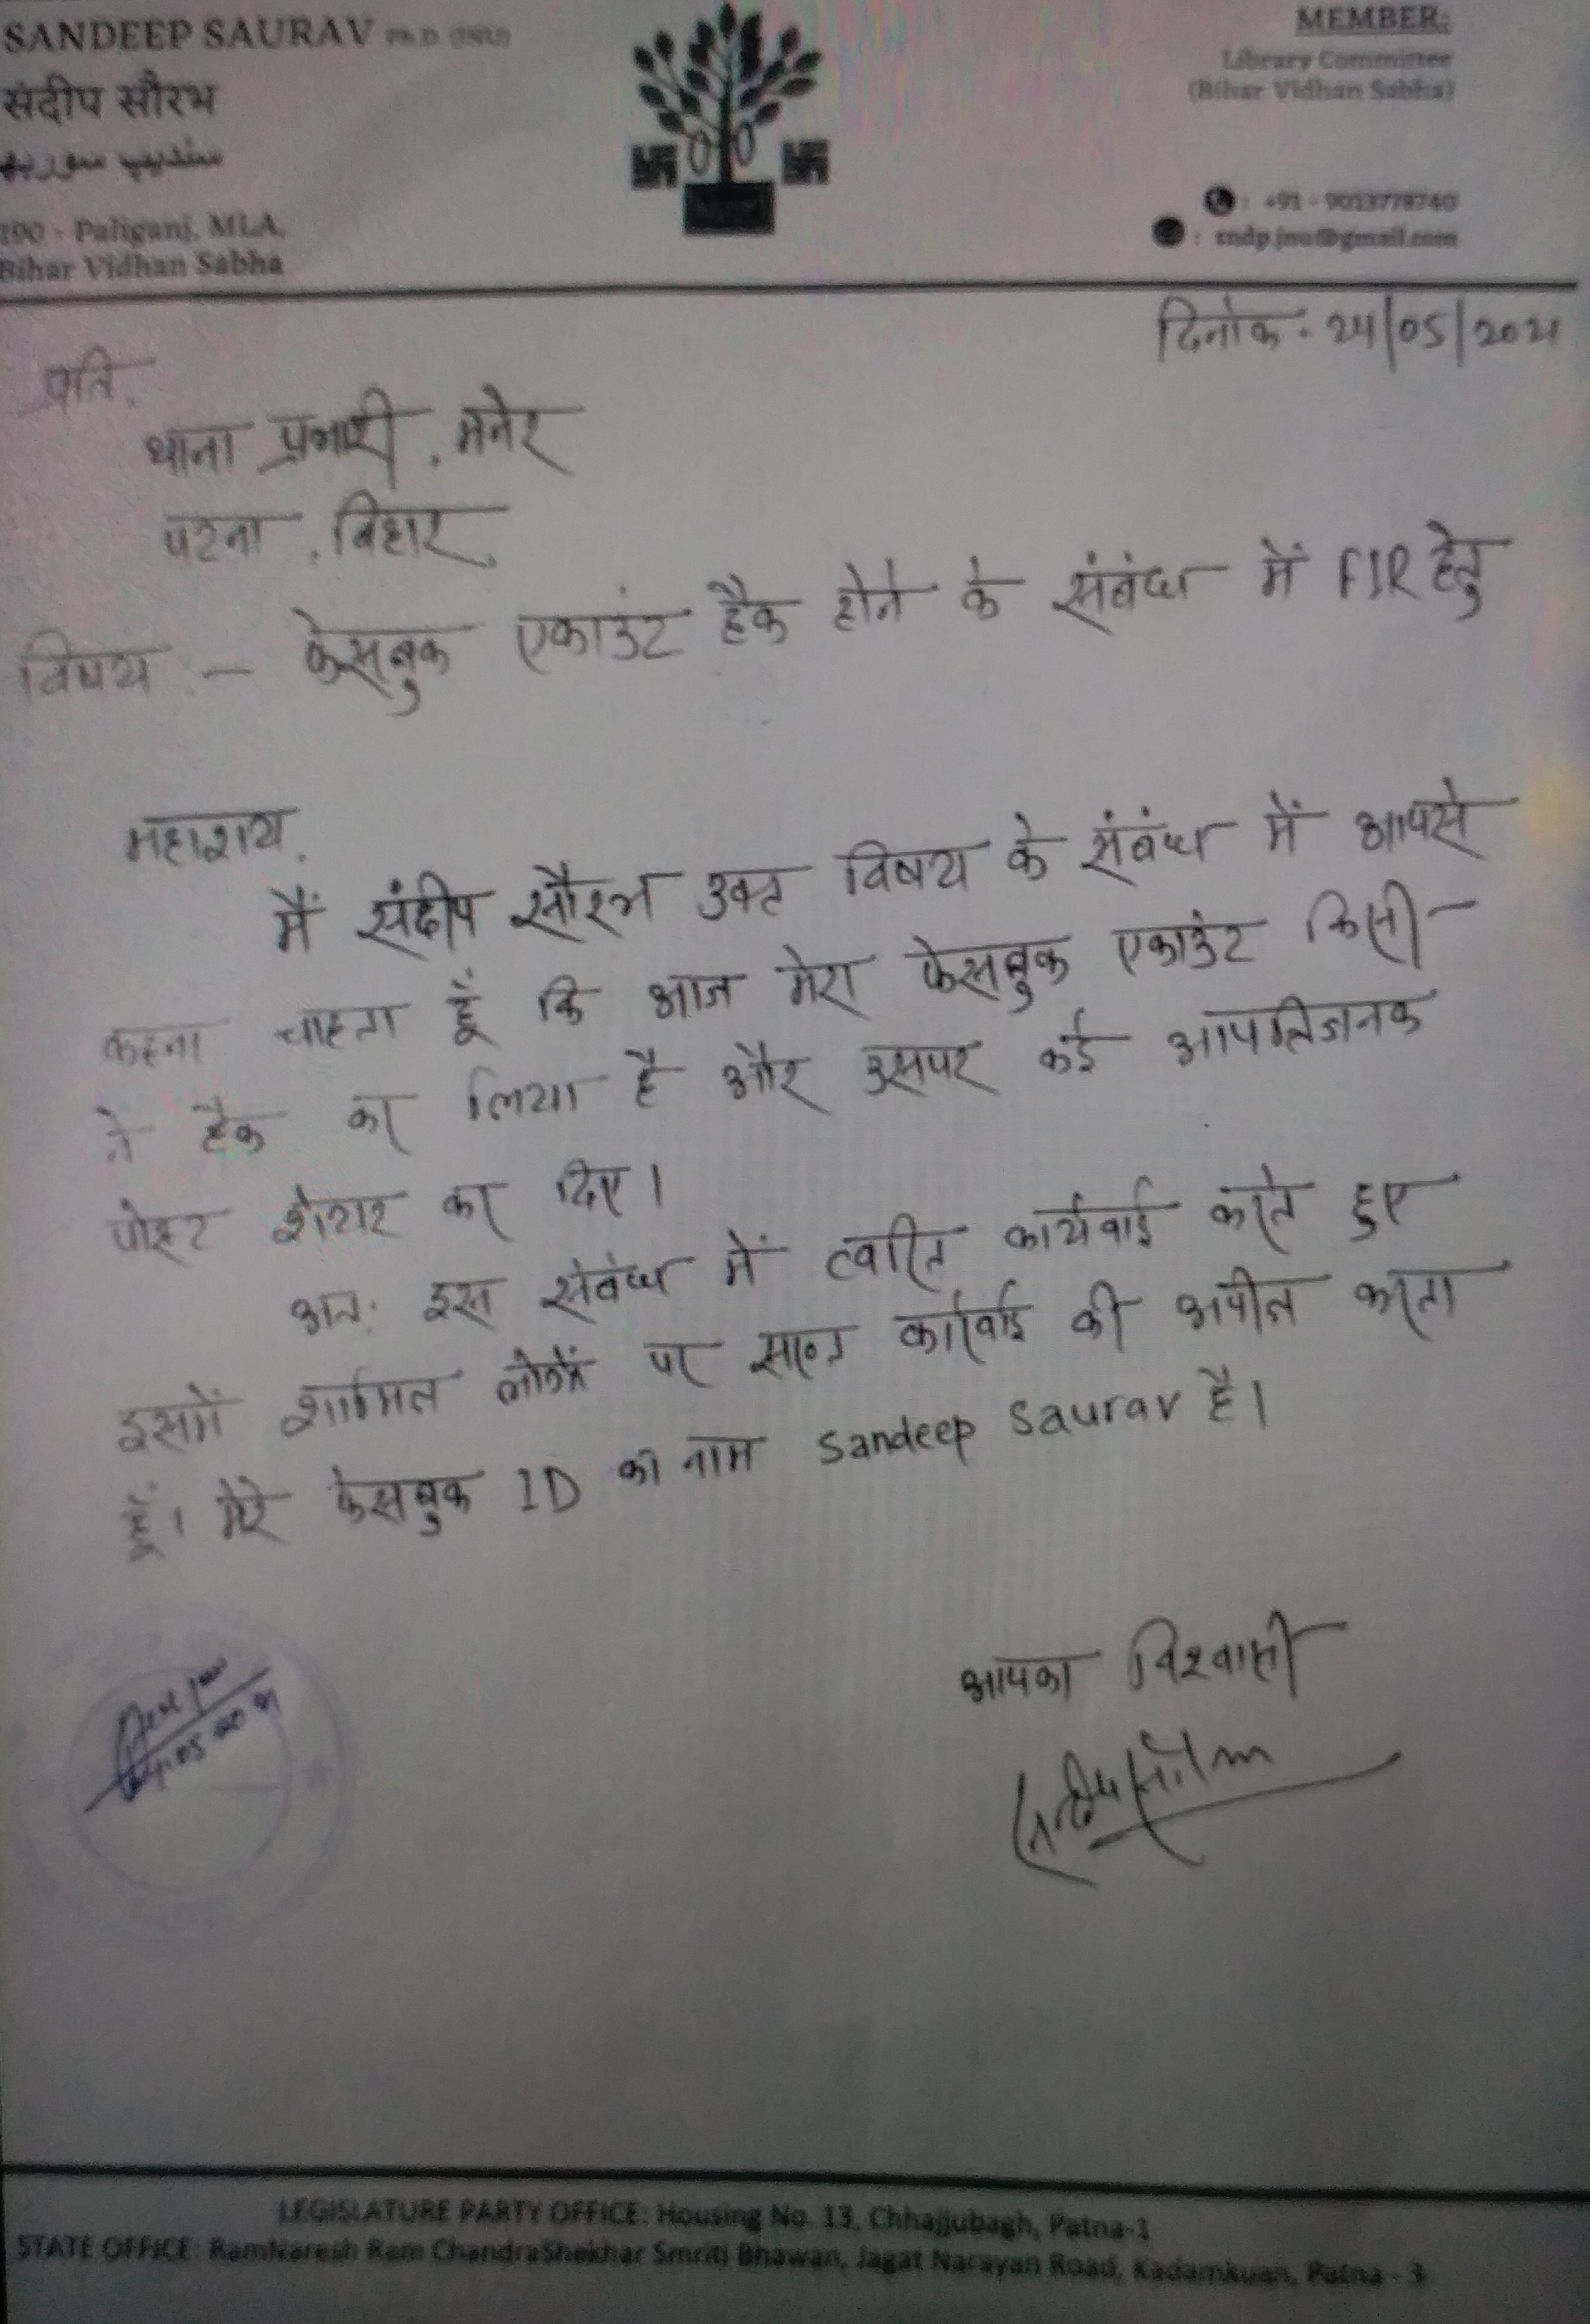 SANDEEP SAURAV Ph.D. (JNU)
संदीप सौरभ
190 - Paliganj, MLA,
Bihar Vidhan Sabha
MEMBER:
Library Committee
(Bihar Vidhan Sabha)
: +91 - 9013778740
: sndp.jnu@gmail.com
दिनांक: 24/05/2021
प्रति,
थाना प्रभारी, मनेर
पटना, बिहार,
विषय :- फेसबुक एकाउंट हैक होने के संबंध में FIR हेतु
महाशय,
मैं संदीप सौरभ उक्त विषय के संबंध में आपसे
कहना चाहता हूँ कि आज मेरा फेसबुक एकाउंट किसी
ने हैक कर लिया है और उसपर कई आपत्तिजनक
पोस्ट शेयर कर दिए।
अतः इस संबंध में त्वरित कार्यवाई करते हुए
इसमें शामिल लोगों पर सख्त कार्रवाई की अपील करता
हूँ। मेरे फेसबुक ID का नाम Sandeep Saurav है।
आपका विश्वासी
संदीप सौरभ
LEGISLATURE PARTY OFFICE: Housing No. 13, Chhajjubagh, Patna-1
STATE OFFICE: RamNaresh Ram ChandraShekhar Smriti Bhawan, Jagat Narayan Road, Kadamkuan, Patna - 3